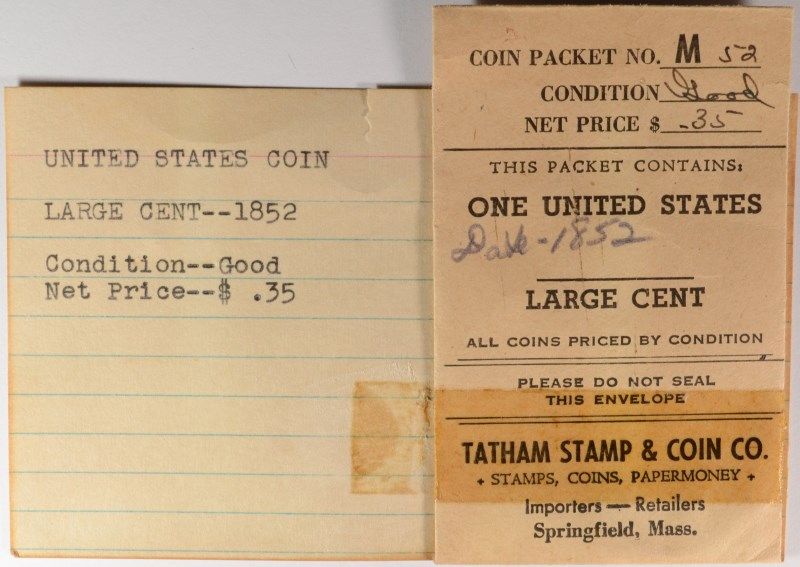 UNITED STATES COIN
LARGE CENT--1852
Condition--Good
Net Price--$ .35
COIN PACKET NO. M 52
CONDITION Good
NET PRICE $ .35
THIS PACKET CONTAINS:
ONE UNITED STATES
Date-1852
LARGE CENT
ALL COINS PRICED BY CONDITION
PLEASE DO NOT SEAL
THIS ENVELOPE
TATHAM STAMP & COIN CO.
+ STAMPS, COINS, PAPERMONEY +
Importers — Retailers
Springfield, Mass.